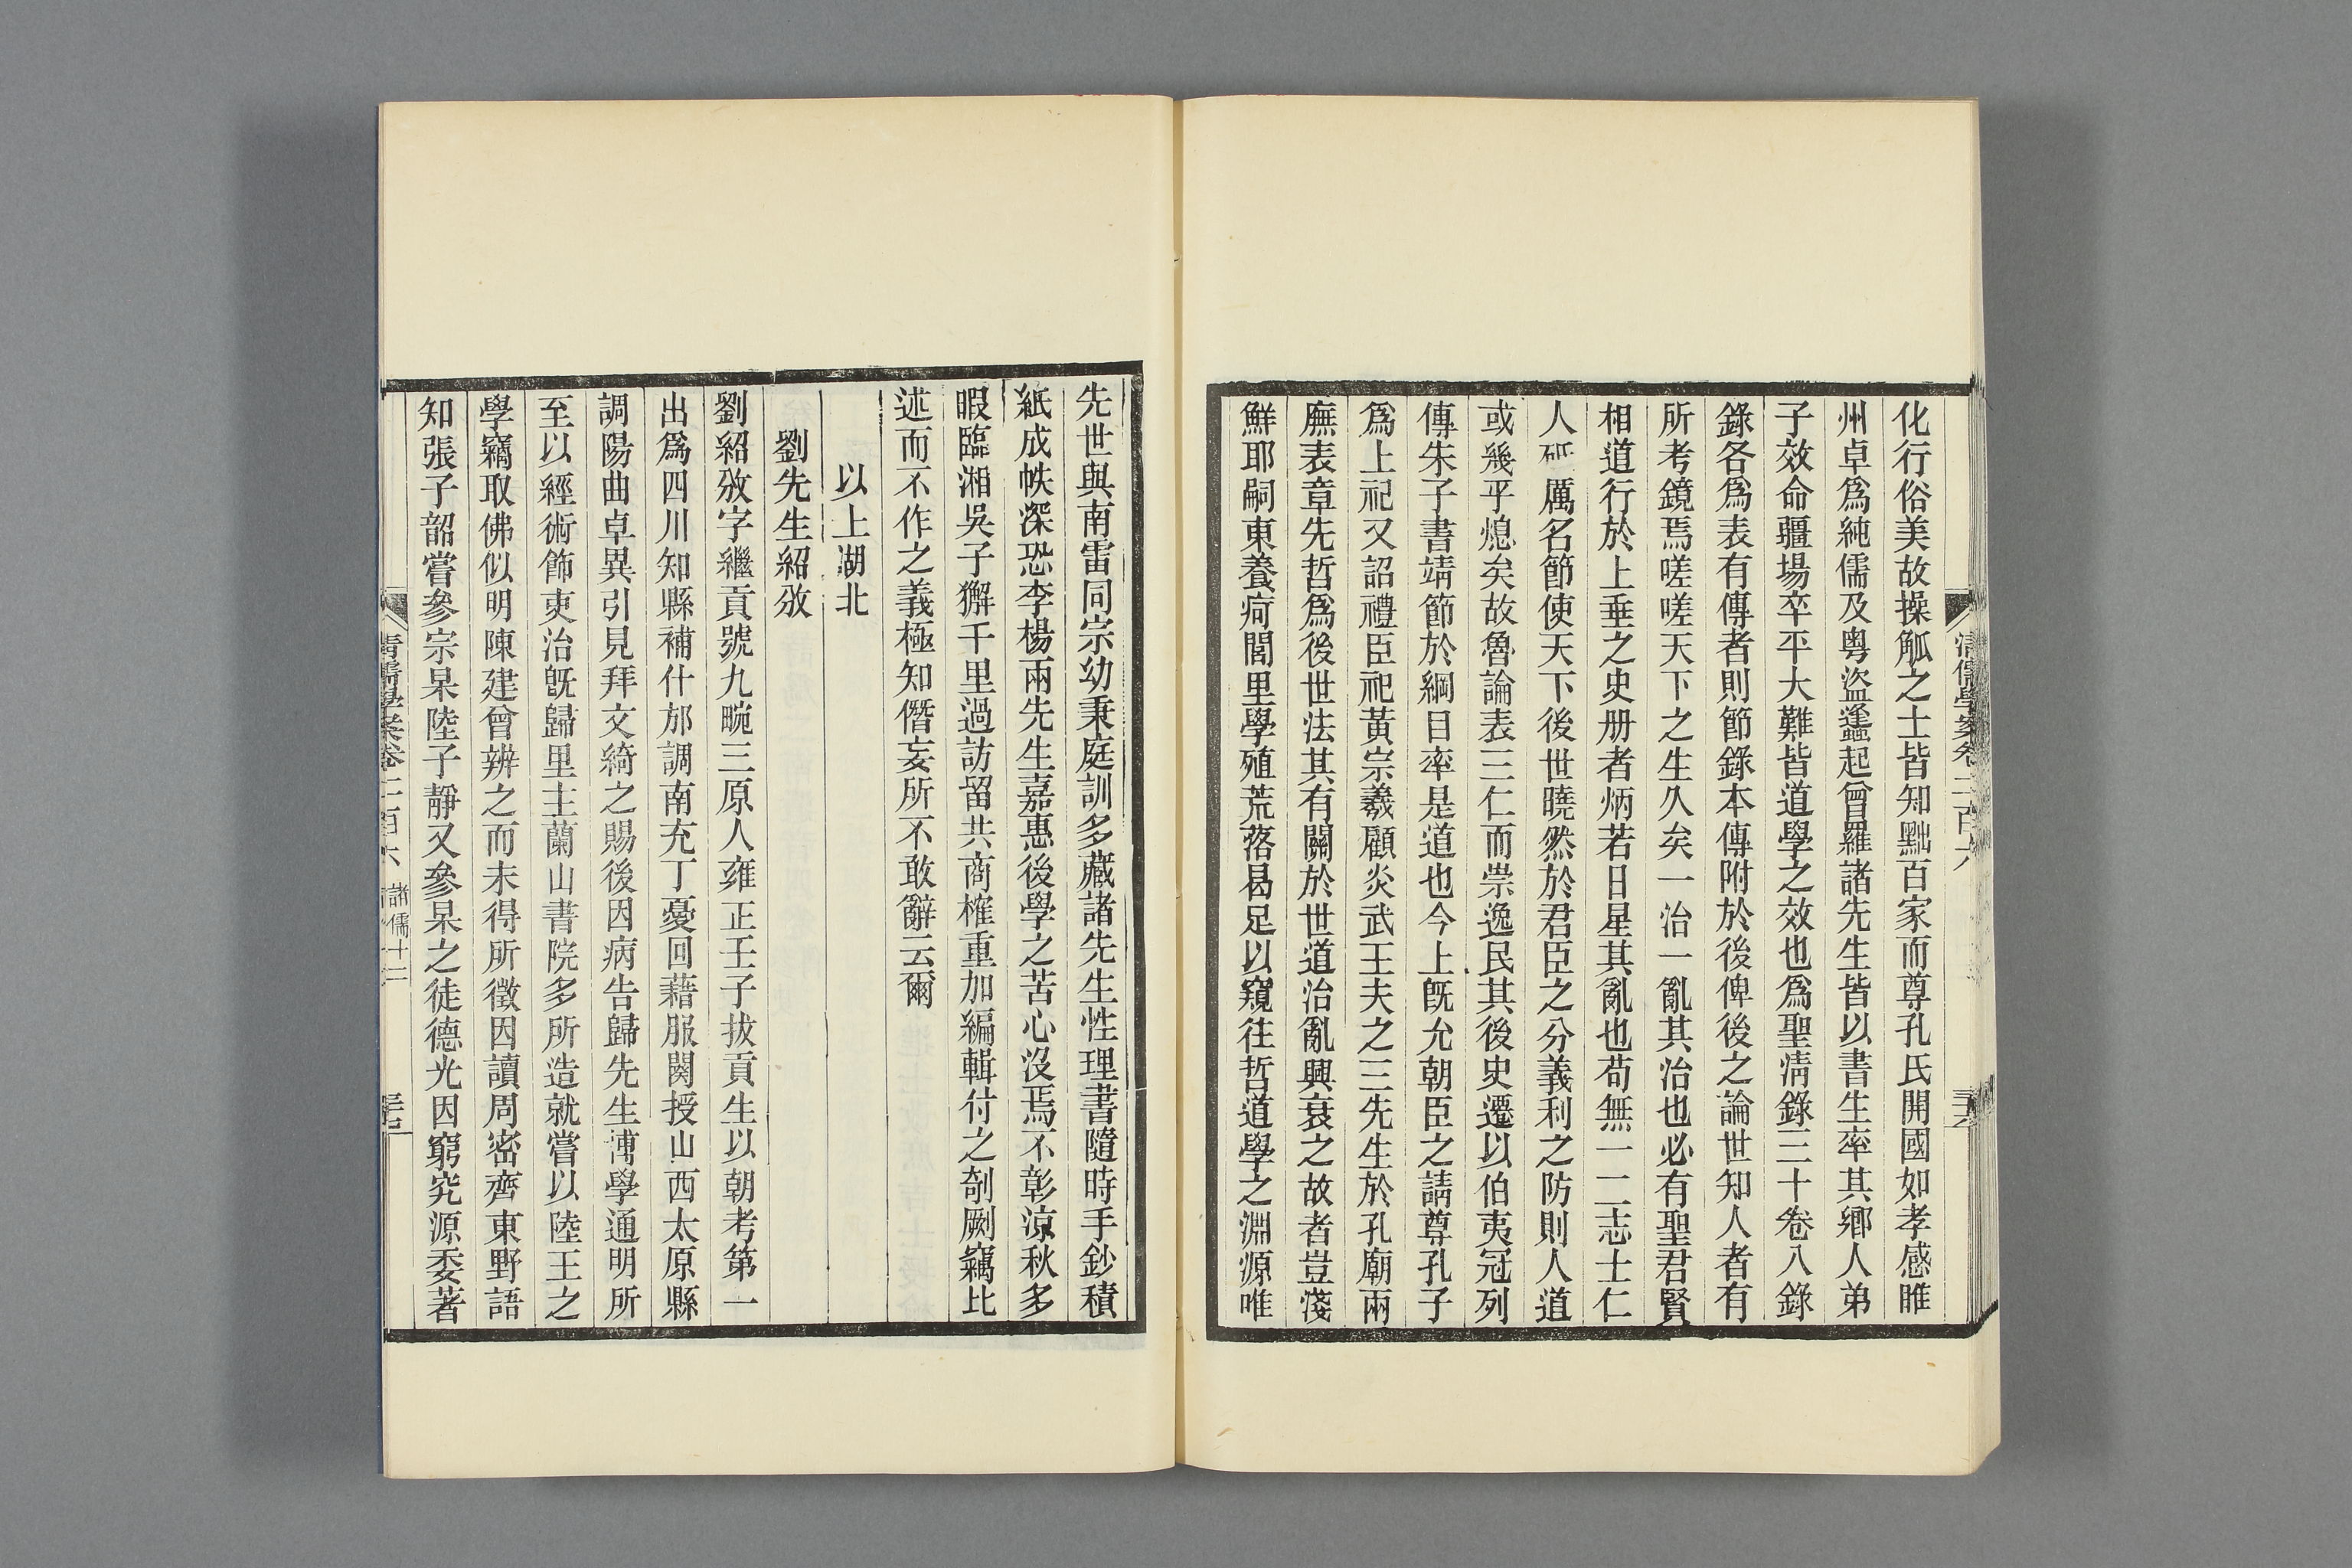 化行俗美故操觚之士皆知黜百家而尊孔氏開國如孝感睢
州卓爲純儒及粤盜蠭起曾羅諸先生皆以書生率其鄉人弟
子效命疆場卒平大難皆道學之效也爲聖淸錄三十卷八錄
錄各爲表有傳者則節錄本傳附於後俾後之論世知人者有
所考鏡焉嗟嗟天下之生久矣一治一亂其治也必有聖君賢
相道行於上垂之史册者炳若日星其亂也苟無一二志士仁
人砥厲名節使天下後世曉然於君臣之分義利之防則人道
或幾乎熄矣故魯論表三仁而崇逸民其後史遷以伯夷冠列
傳朱子書靖節於綱目率是道也今上旣允朝臣之請尊孔子
爲上祀又詔禮臣祀黃宗羲顧炎武王夫之三先生於孔廟兩
廡表章先哲爲後世法其有關於世道治亂興衰之故者豈淺
鮮耶嗣東養疴閭里學殖荒落曷足以窺往哲道學之淵源唯
淸儒學案卷二百六
先世與南雷同宗幼秉庭訓多藏諸先生性理書隨時手鈔積
紙成帙深恐李楊兩先生嘉惠後學之苦心沒焉不彰涼秋多
暇臨湘吳子獬千里過訪留共商榷重加編輯付之剞劂竊比
述而不作之義極知僭妄所不敢辭云爾
以上湖北
劉先生紹攽
劉紹攽字繼貢號九畹三原人雍正壬子拔貢生以朝考第一
出爲四川知縣補什邡調南充丁憂回藉服闋授山西太原縣
調陽曲卓異引見拜文綺之賜後因病告歸先生溥學通明所
至以經術飾吏治旣歸里主蘭山書院多所造就嘗以陸王之
學竊取佛似明陳建曾辨之而未得所徵因讀周密齊東野語
知張子韶嘗參宗杲陸子靜又參杲之徒德光因窮究源委著
淸儒學案卷二百六 諸儒十二